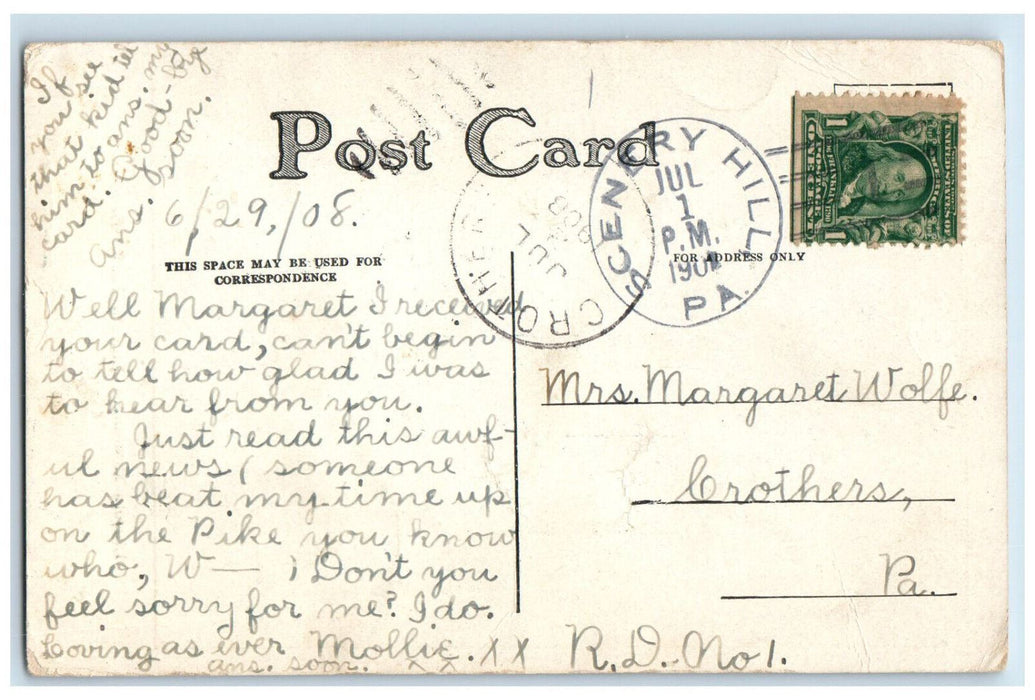 If
you see
that kid tell
him to ans. my
card. Good-bye
Ans. soon.
Post Card
6/29,/08.
THIS SPACE MAY BE USED FOR
CORRESPONDENCE
FOR ADDRESS ONLY
SCENERY HILL
JUL
1
P.M.
190
PA.
CROTHER
JUL
908
1
1
Well Margaret I received
your card, can't begin
to tell how glad I was
to hear from you.
Just read this awf-
ul news ( someone
has beat my time up
on the Pike you know
who, W— ) Don't you
feel sorry for me? I do.
Loving as ever Mollie. XX
ans. soon. XX
Mrs. Margaret Wolfe.
Crothers,
Pa.
R.D. No 1.